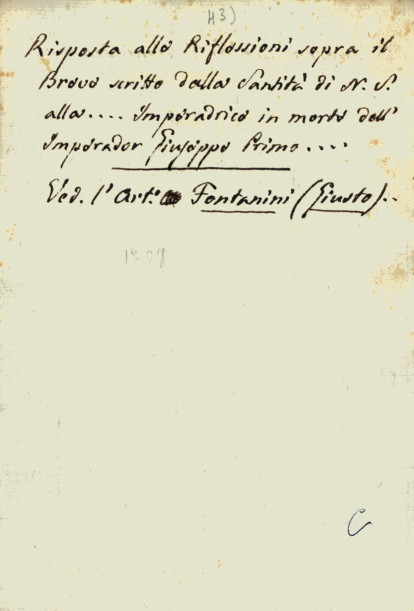 43)
Risposta alle Riflessioni sopra il
Breve scritto dalla Santità di N. S.
alla.... Imperadrice in morte dell'
Imperador Giuseppe Primo....
Ved. l'Art.º Fontanini (Giusto)..
C